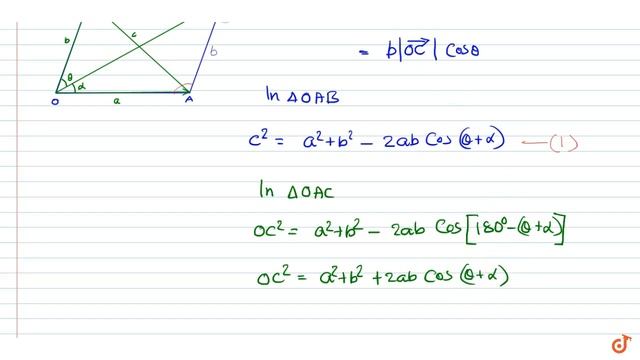 b
c
b
θ
α
O
a
A
= b|OC→| Cosθ
In △OAB
c² = a²+b² − 2ab Cos (θ+α) —(1)
In △OAC
OC² = a²+b² − 2ab Cos [180°−(θ+α)]
OC² = a²+b² + 2ab Cos (θ+α)